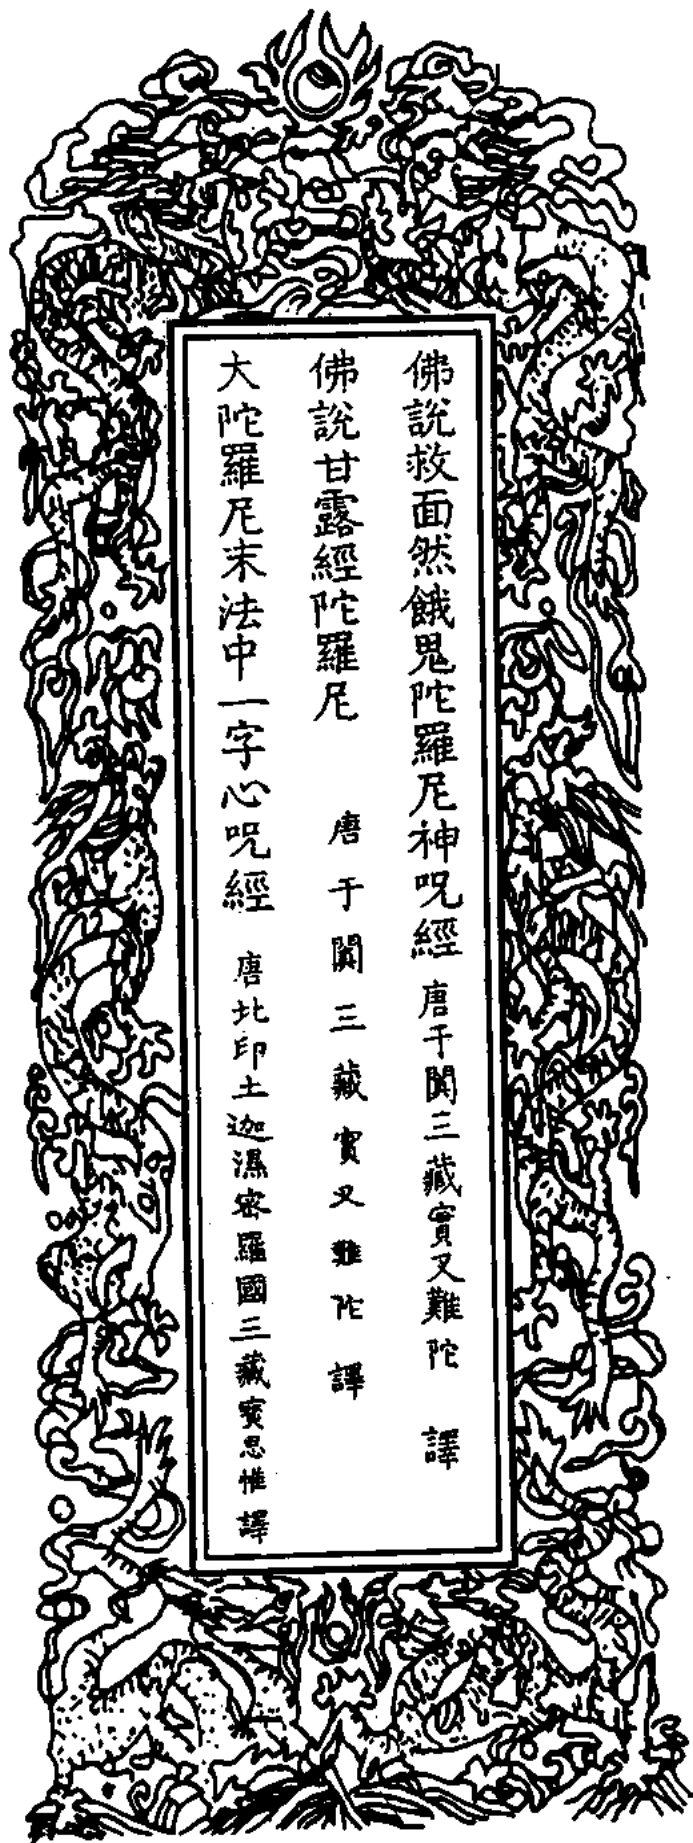 佛說救面然餓鬼陀羅尼神呪經 唐于闐三藏實叉難陀 譯
佛說甘露經陀羅尼 唐于闐三藏實叉難陀 譯
大陀羅尼末法中一字心呪經 唐北印土迦濕密羅國三藏寶思惟 譯